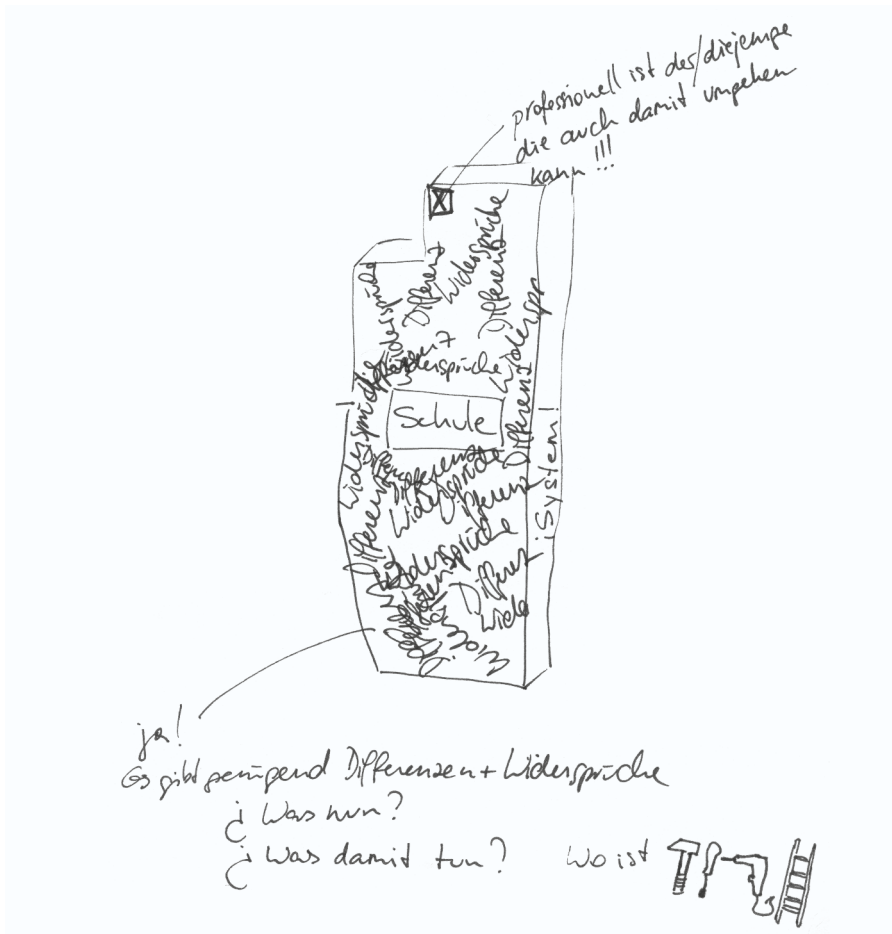 professionell ist der/diejenige
die auch damit umgehen
kann !!!
Widersprüche
Differenz
Widersprüche
Differenz
Widersprüche
Differenz
Widerspr
Widersprüche
Schule
Widersprüche
Differenz
Differenz
Widersprüche
Differenz
Differenz
Widersprüche
Differenz
Wide
¡System!
ja!
Es gibt genügend Differenzen + Widersprüche
¿ Was nun?
¿ Was damit tun? Wo ist